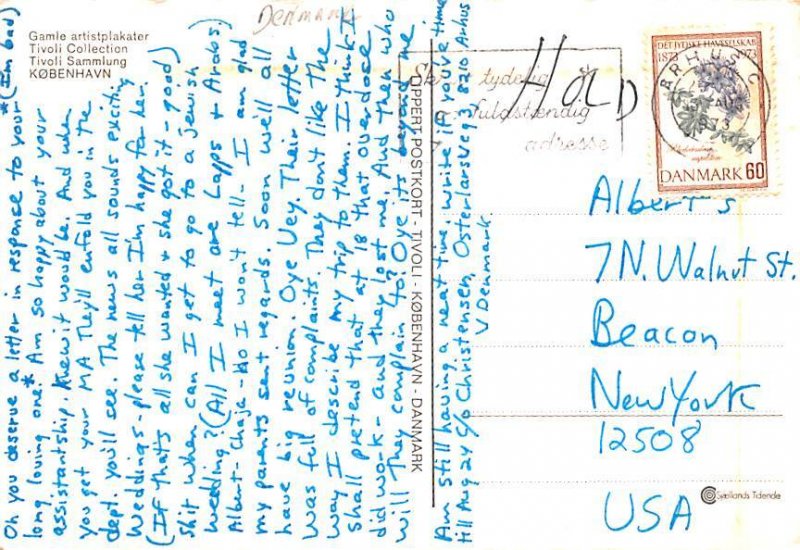 Gamle artistplakater
Tivoli Collection
Tivoli Sammlung
KØBENHAVN
Denmark
HOLD
tydelig
fuldstændig
adresse
DET JYDSKE HAVESELSKAB
1873 1973
ÅRHUS C
DANMARK 60
Oh you deserve a letter in response to your *(Im bad)
long loving one.* Am so happy about your
assistantship. Knew it would be. And when
you get your MA They'll enfold you in the
dept. you'll see. The news all sounds exciting
Weddings - please tell her Im happy for her.
(If that's all she wanted & she got it - good)
shit when can I get to go to a Jewish
wedding? (All I meet are Lapps + Arabs)
Albert - Chaja - Ho I won't tell - I am glad
my parents sent regards. Soon we'll all
have big reunion. Oye Vey. Their letter
was full of complaints. They don't like the
way I describe my trip to them. I think I
shall pretend that at 18 that overdose
did work - and they lost me. And then who
will They complain to? Oye its beyond me
Am still having a neat time. write if you've time
till Aug 24 c/o Christensen, Osterlarsvej 3, 8210 Arhus
V Denmark
LIPPERT POSTKORT - TIVOLI - KØBENHAVN - DANMARK
Albert's
7 N. Walnut St.
Beacon
New York
12508
USA
Sjællands Tidende